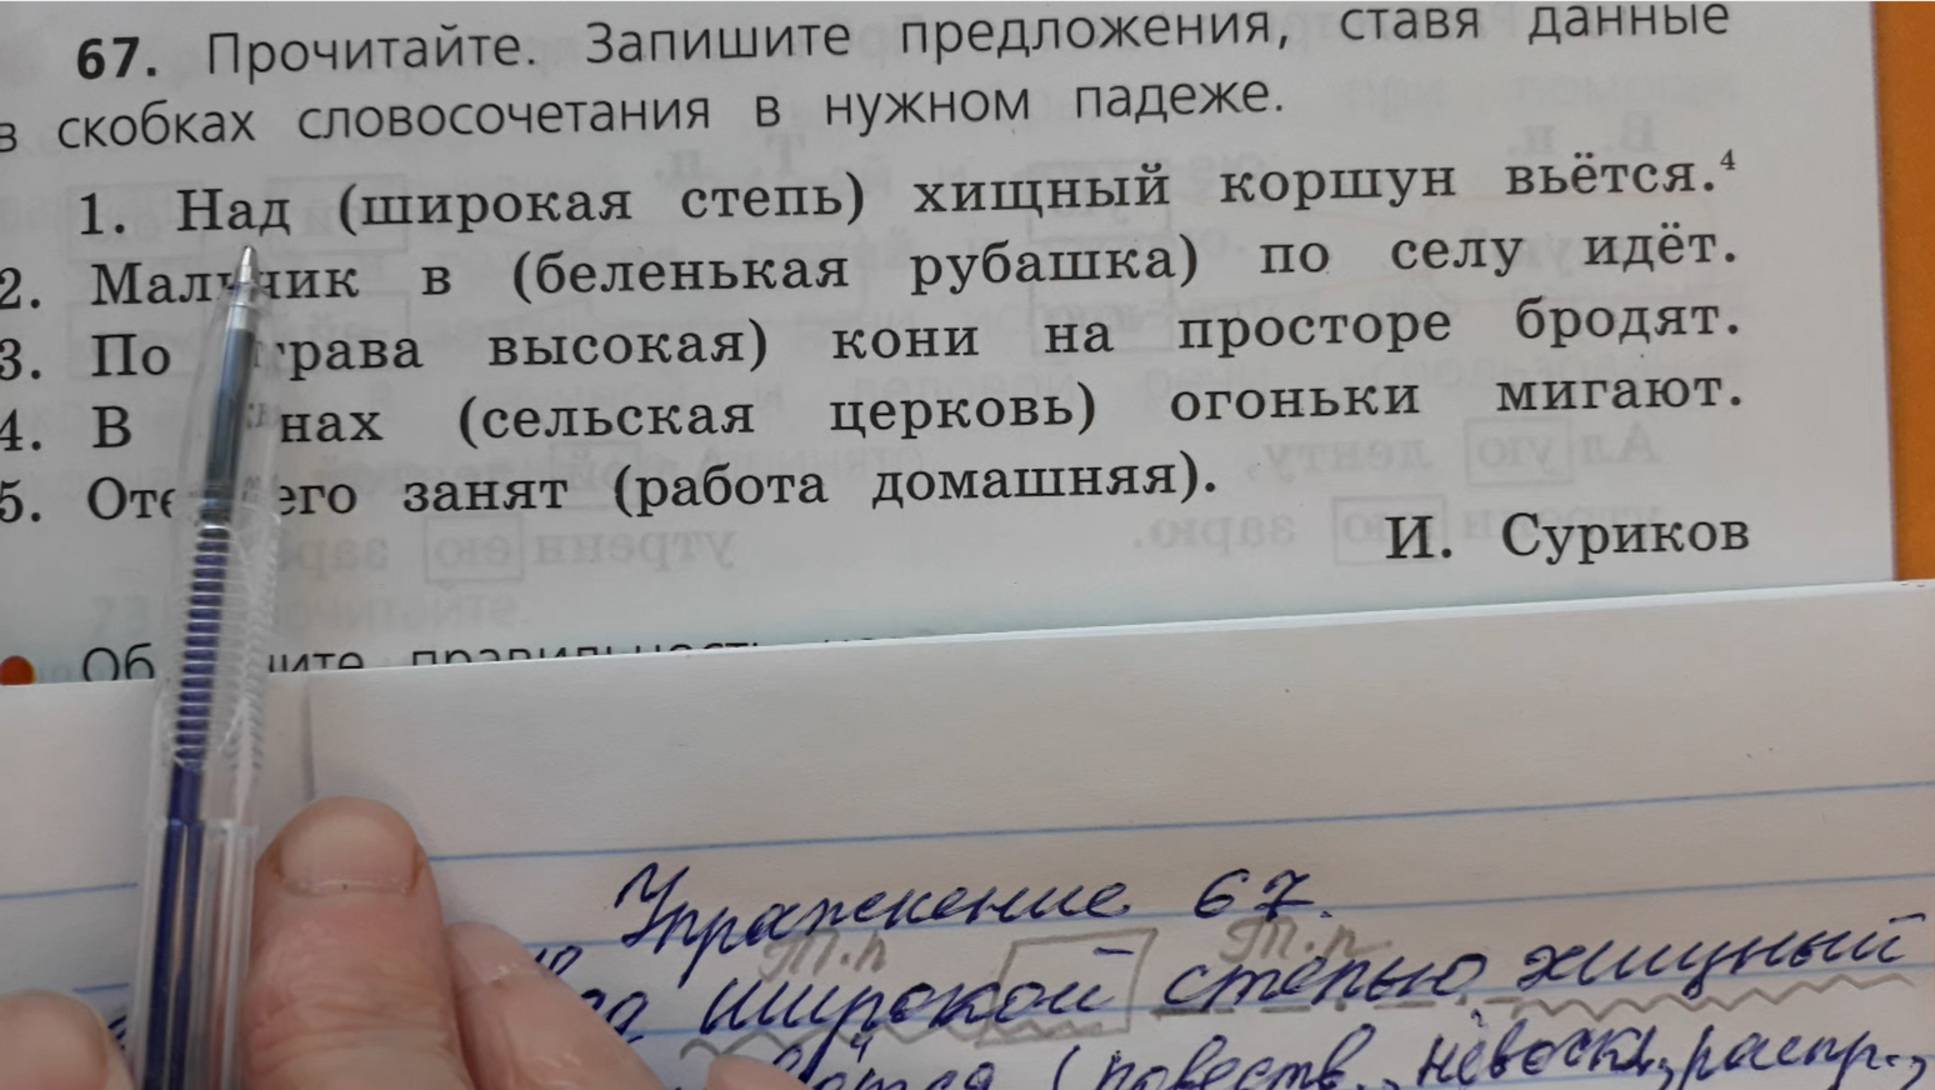 67. Прочитайте. Запишите предложения, ставя данные
в скобках словосочетания в нужном падеже.
1. Над (широкая степь) хищный коршун вьётся.⁴
2. Мальчик в (беленькая рубашка) по селу идёт.
3. По трава высокая) кони на просторе бродят.
4. В (сельская церковь) огоньки мигают.
5. его занят (работа домашняя).
И. Суриков
правильность
Упражнение 67.
Т.п Т.п
широкой степью хищный
(повеств., невоскл., распр.,